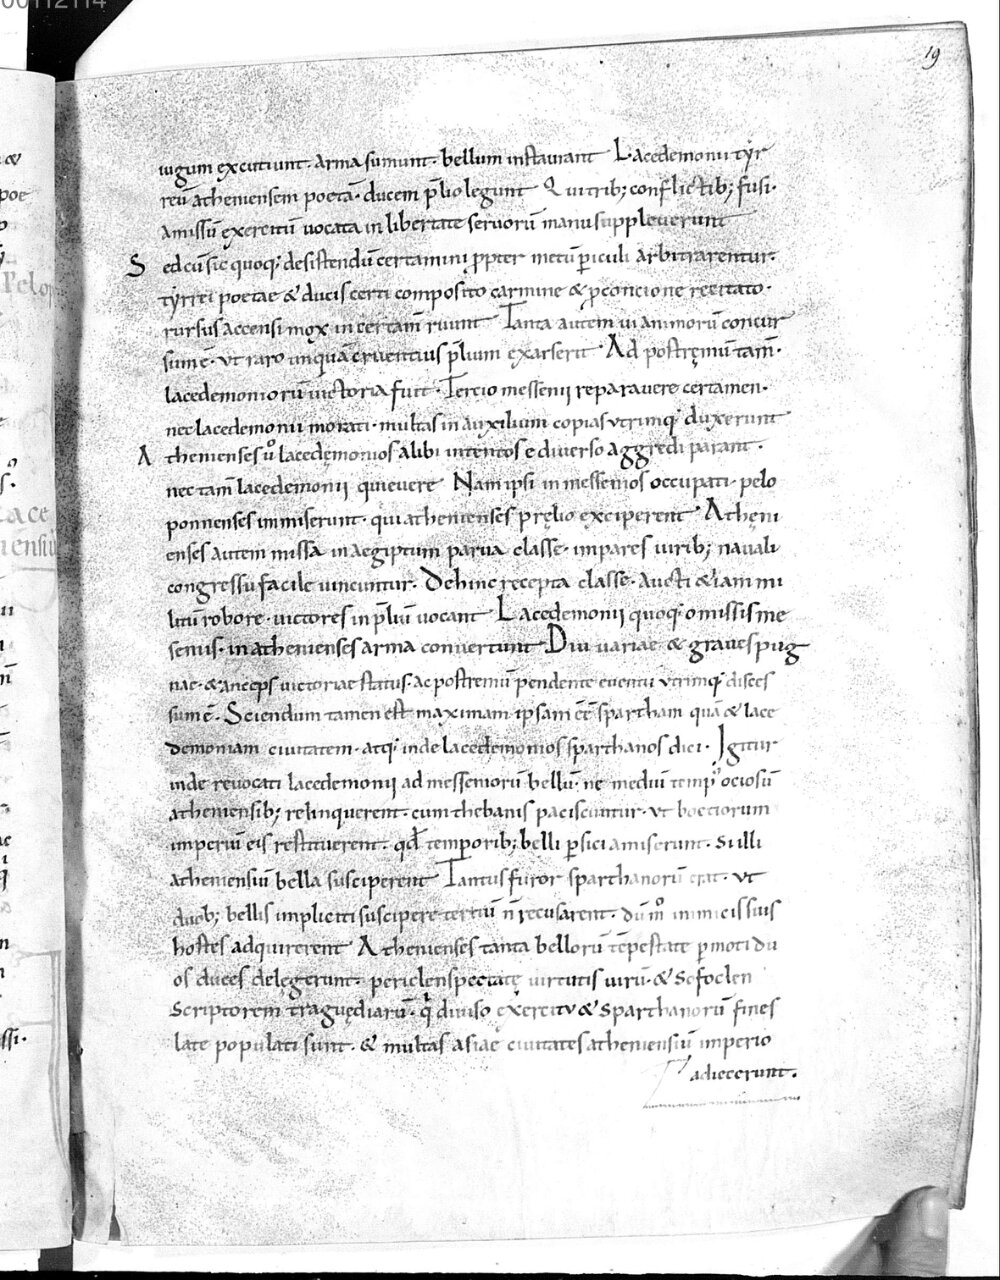 00112114
19
iugum excutiunt· arma sumunt· bellum instaurant Lacedemonii tyr
teū atheniensem poetā· ducem p̄lio legunt Qui trib; conflictib; fusi·
amissū exercitū uocata in libertatē seruorū manu suppleuerunt
Sed cū sic quoq; desistendū certamini ꝓpter metū ꝑiculi arbitrarentur·
tyrtei poetae & ducis certi composito carmine & ꝓ concione recitato·
rursus accensi mox in certam̄ ruunt Tanta autem ui animorū concur
sum ē· ut raro unquā cruentius p̄lium exarserit· Ad postremū tam̄·
lacedemoniorū uictoria fuit· Tercio messenii reparauere certamen·
nec lacedemonii morati· multas in auxilium copias utrimq; duxerunt
Athenienses ū lacedęmonios alibi intentos e diuerso aggredi parant·
nec tam̄ lacedemonii quieuere Nam ipsi in messenios occupati· pelo
ponnenses immiserunt· qui athenienses pręlio exciperent Atheni
enses autem missa in aegiptum parua classe· impares uirib; nauali
congressu facile uincuntur· Dehinc recepta classe· aucti & iam mi
litū robore· uictores in p̄liū uocant Lacedemonii quoq; omissis me
seniis· in athenienses arma conuertunt Diu uariae & graues pug
nae· & anceps uictoriae status· ac postremū pendente euentu utrimq; disces
sum ē· Sciendum tamen est maximam ipsam eē spartham quā & lace
demoniam ciuitatem· atq; inde lacedemonios sparthanos dici· Igitur
inde reuocati lacedemonii ad messeniorū bellū· ne mediū temp' ociosū
atheniensib; relinquerent· cum thebanis paciscuntur· ut boetiorum
imperiū eis restituerent· qđ temporib; belli ꝑsici amiserunt· si illi
atheniensiū bella susciperent Tantus furor sparthanorū erat· ut
duob; bellis impliciti suscipere tertiū n̄ recusarent· dū m̊ inimicis suis
hostes adquirerent Athenienses tanta bellorū tēpestate ꝑmoti du
os duces delegerunt· periclen spectatę uirtutis uirū· & Sofoclen
scriptorem traguędiarū· qui diuiso exercitu & sparthanorū fines
late populati sunt· & multas asiae ciuitates atheniensiū imperio
adiecerunt·